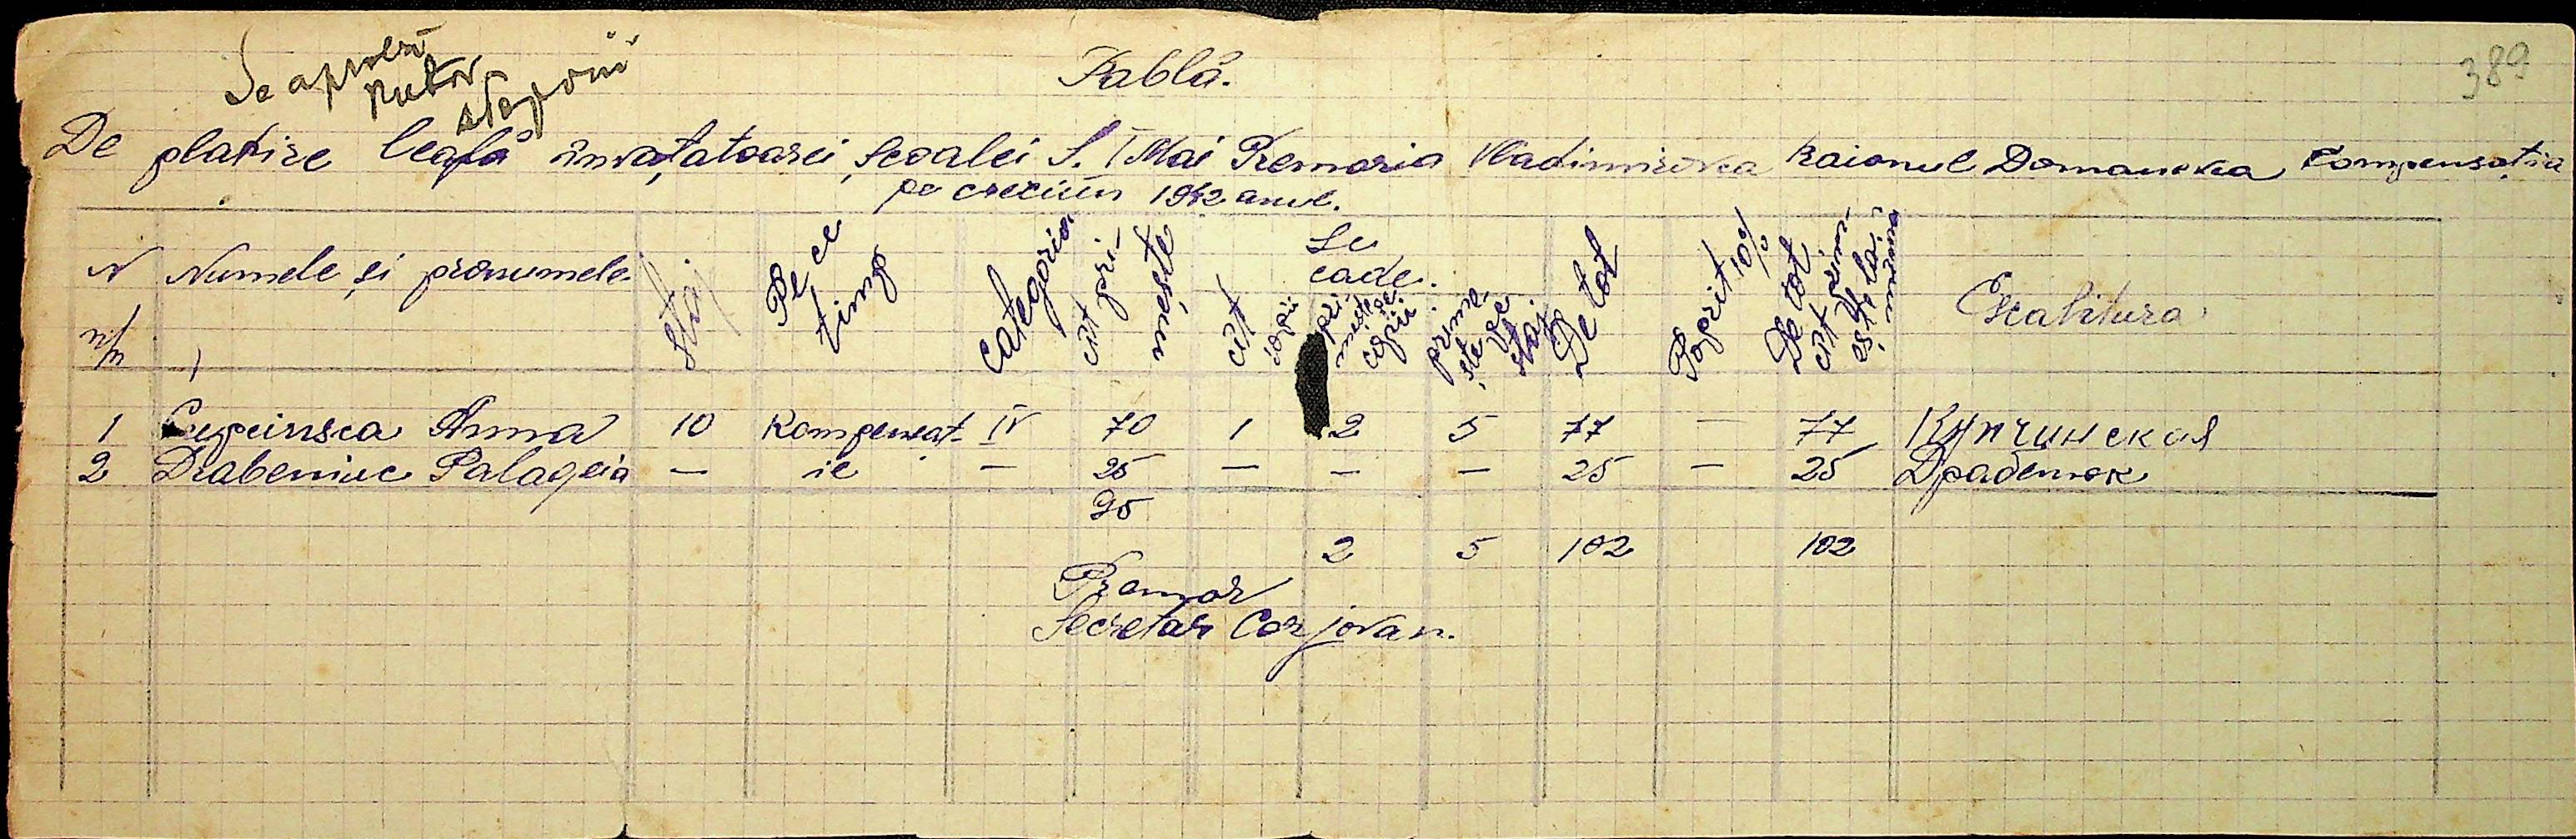 389
Se aprobă
Tablă.
De platire leafă învațatoarei, școalei S. I Mai Premaria Vladimirovca Raionul Domanovca Compensația
pe creciun 1942 anul.
N n/n Numele și pronumele Staj Pe ce timp Categoria cît primește Se cade. cît copii primește pe copii primește pe staj De tot Poprit 10% De tot cît primește la mîina Iscalitura
1 Cupcinsca Anna 10 Kompensat- IV 70 1 2 5 77 — 77 Купчинская
2 Drabeniuc Palageia — ie — 25 — — — 25 — 25 Драбенюк
95
2 5 102 102
Premar
Secretar Corjovan.